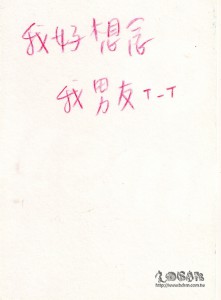 我好想念
我男友 T_T